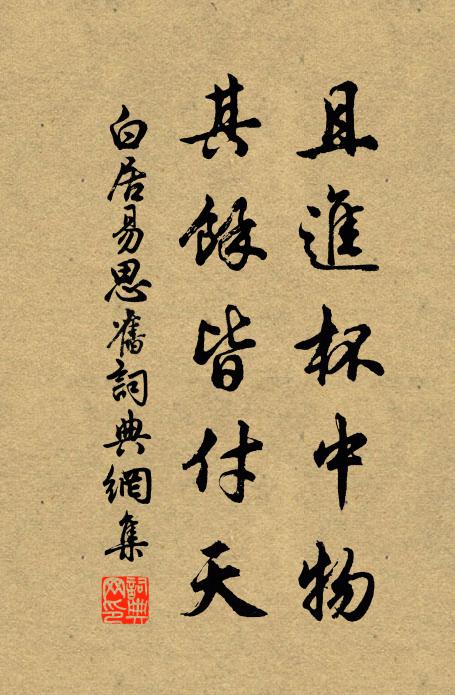 且進杯中物
其餘皆付天
白居易思舊詞典網集
詞典網印